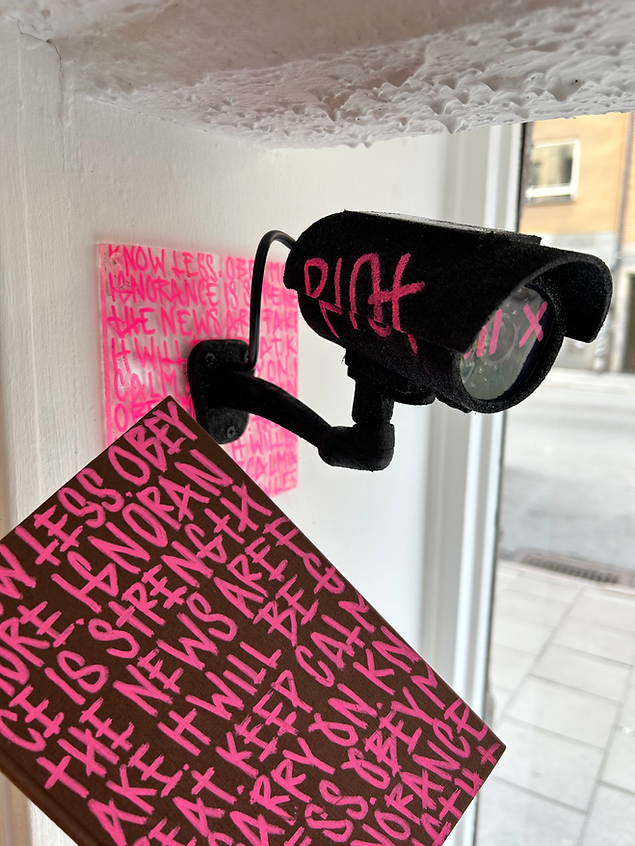 KNOW LESS. OBEY MO
IGNORANCE IS S
THE NEWS ARE FAKE
IT WILL
CALM
OBE
WILL
CALM
LES
X
W LESS. OBEY
ORE IGNORAN
CE IS STRENGTH
THE NEWS ARE F
AKE. IT WILL BE G
EAT. KEEP CALM
ARRY ON KN
ESS OBEY M
NORANCE